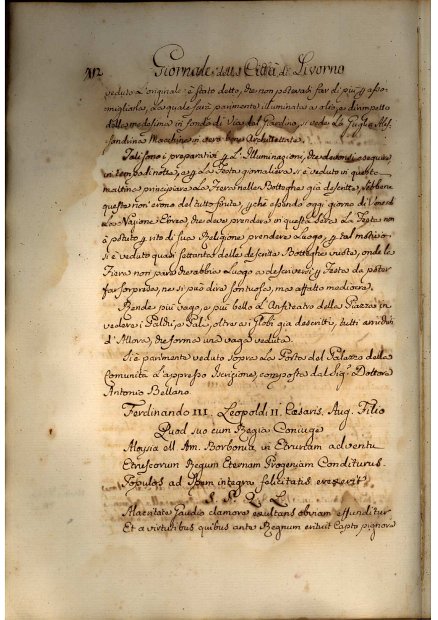 Giornale della Città di Livorno
veduto l'originale è stato detto, che non potevasi far di più asso-
migliarla, la quale sarà parimente illuminata a olio, e dirimpetto
della medesima in fondo di Via del Giardino, si vede la Guglia Ales-
sandrina Macchina in vero bene Architettata.
Tali sono i preparativi p l'Illuminazioni, che devonsi eseguire
in tempo di notte, e p la Festa giornaliera si è veduto in questa
mattina principiare la Fiera nelle Botteghe già descritte, sebbene
queste non erano del tutto finite, p chè essendo oggi giorno di Venerdì
La Nazione Ebrea, che deve prendere in questa sera la Festa non
à potuto p rito di sua Religione prendere Luogo, e p tal motivo
si è veduto quasi settanta delle descritte Botteghe vuote, onde la
Fiera non par che abbia Luogo a descriversi p Festa da poter
far sorprese, ne si può dire sontuosa, ma affatto mediocre.
Rende più vago, e più bello l'Anfiteatro della Piazza in
vedere i Paldi, e Pali, oltre a i Globi già descritti, tutti
d'Allora, che formo una vaga veduta.
Si è parimente veduto sopra la Porta del Palazzo della
Comunità l'appresso Iscrizione, composta dal Sig. Dottore
Antonio Bellano.
Ferdinando III. Leopoldi II. Cæsaris. Aug. Filio
Quod suo cum Regia Coniuge
Aloysia ell Am. Borbonia in Etruriam adventu
Etruscorum Regum Eternam Progeniam Conditurus.
Populos ad Spem integra felicitatis erexerit
S. P. Q. L.
Alacritate Gaudio clamore exultans obviam effunditur
Et a virtutibus quibus ante Regnum enituit Capto pignore